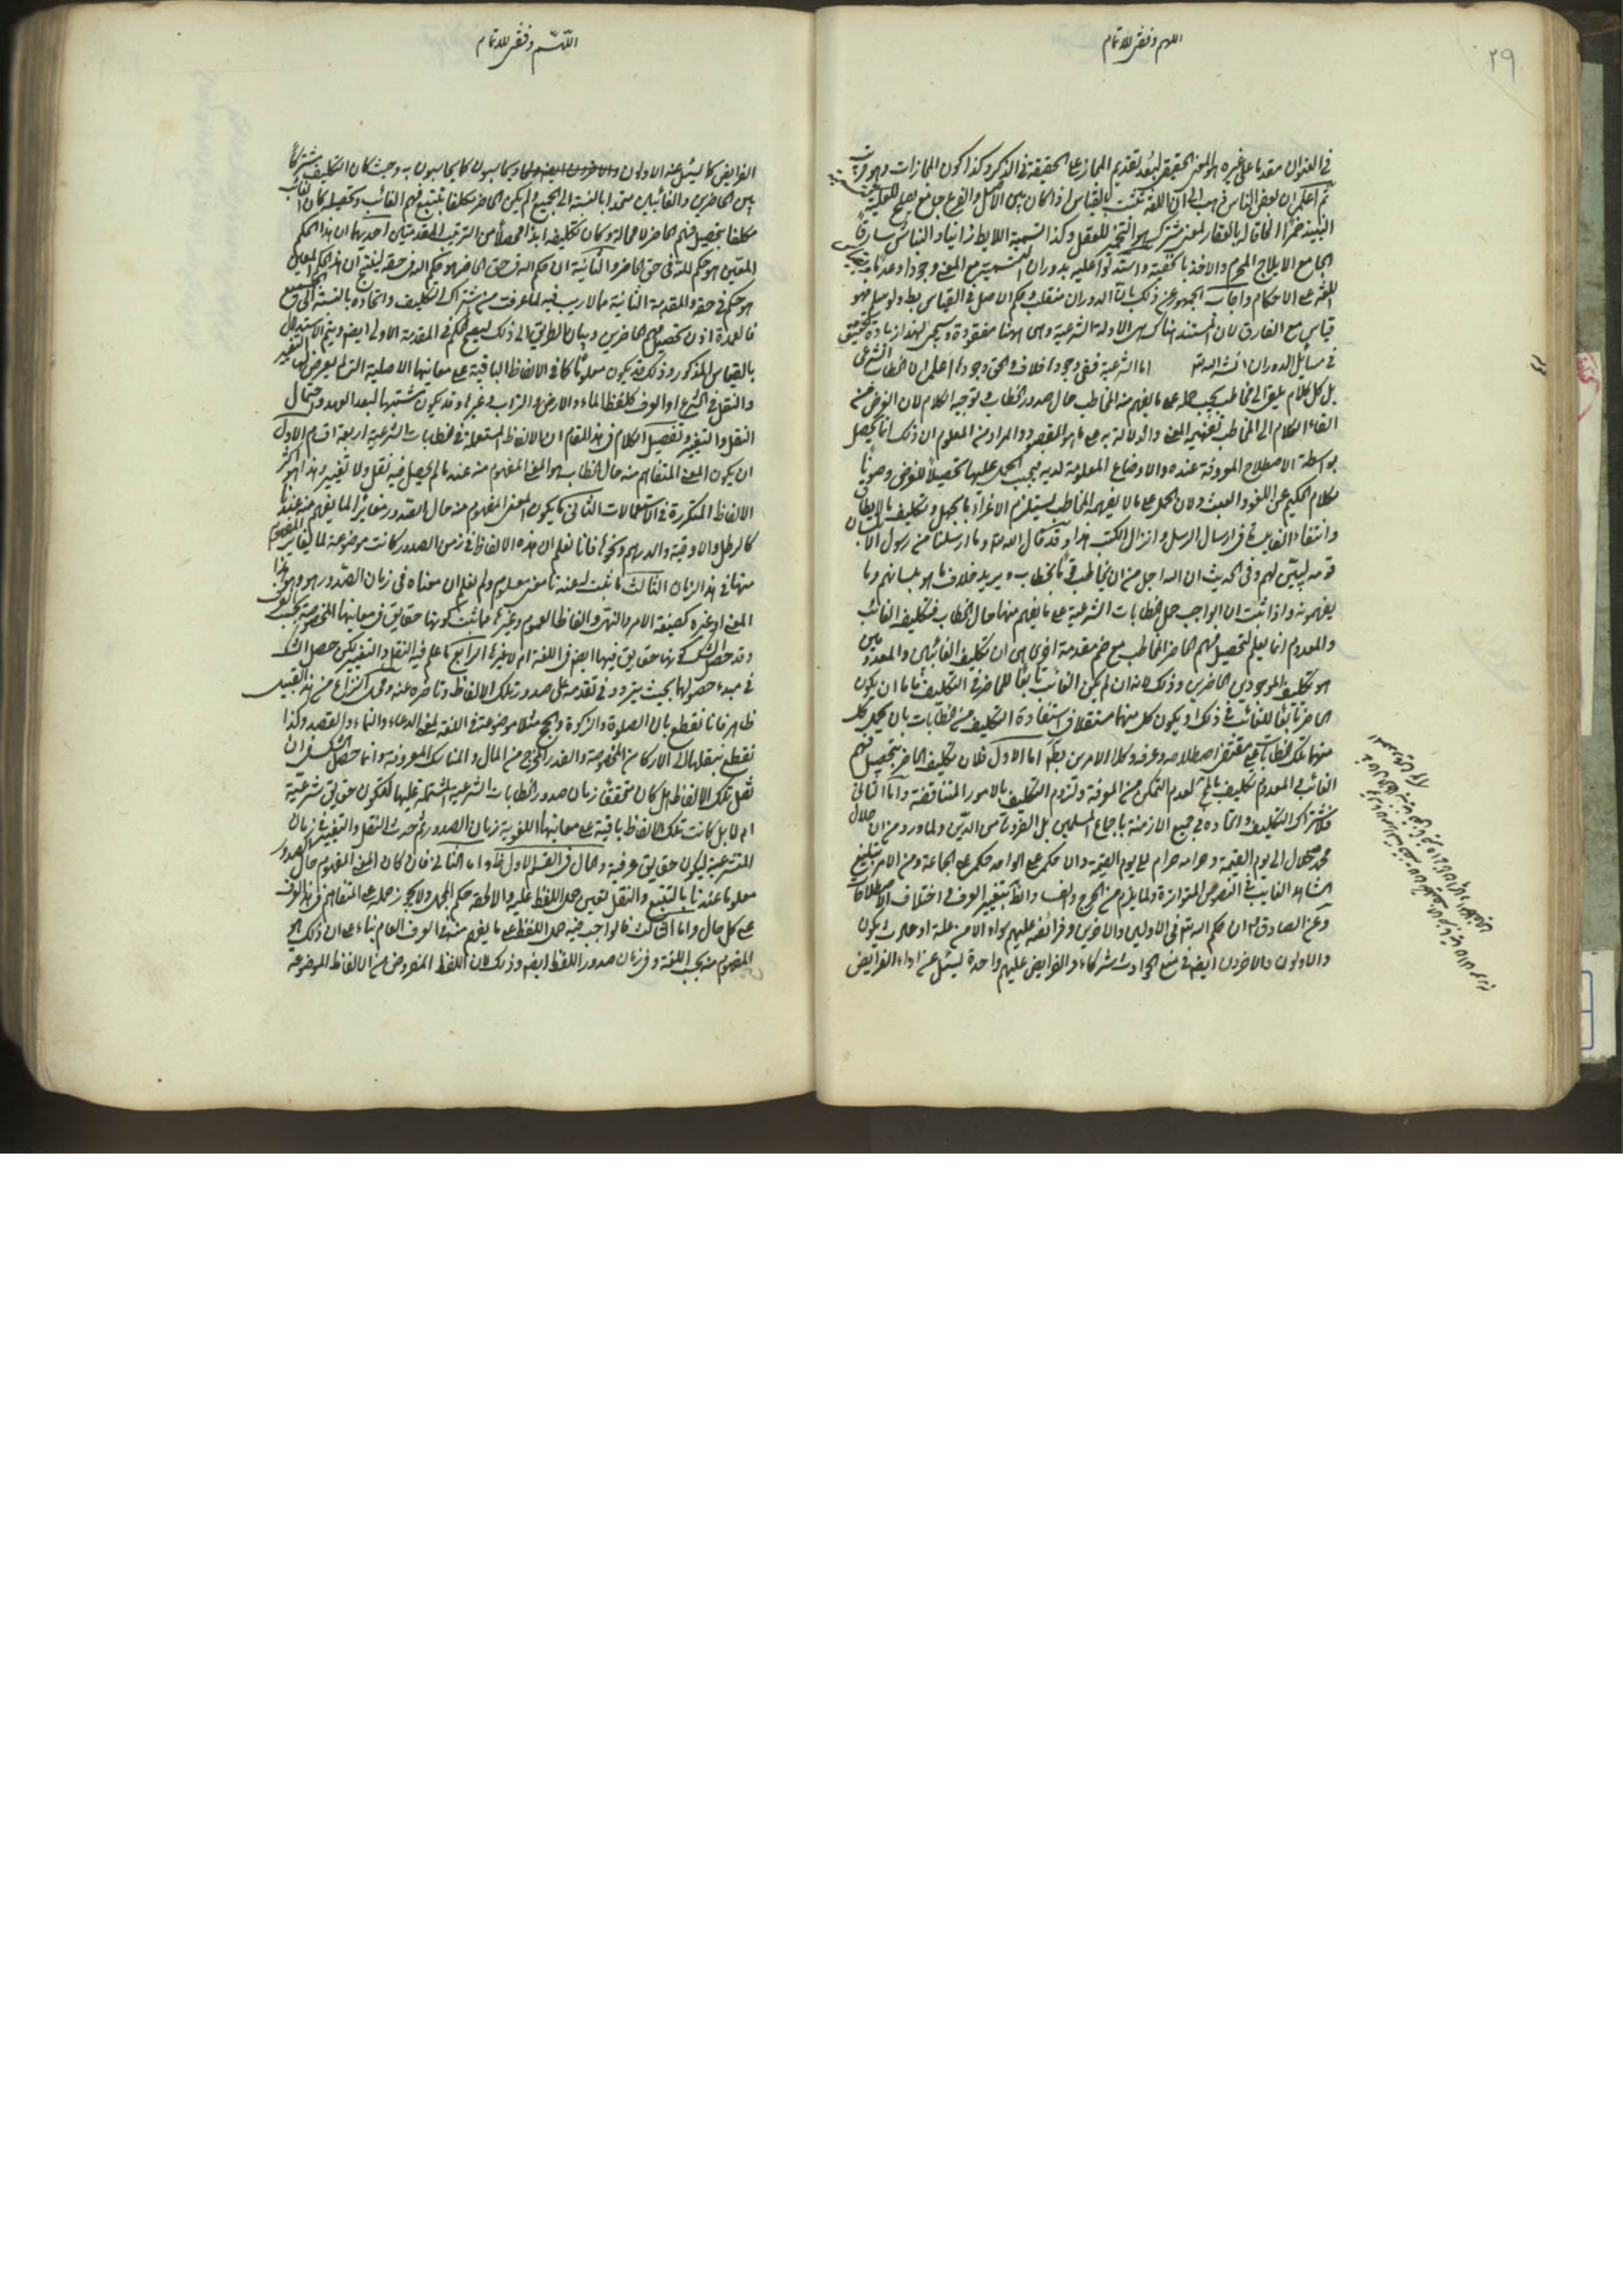 ٢٩
اللهم وفقنی للاتمام
فی العنوان مقدما علی غیره هو المعنی الحقیقی لبعد تقدیم المجاز علی الحقیقة فی الذکر وکذا کون المجازات
ثم اعلم ان بعض الناس ذهب الی ان اللغة تثبت بالقیاس اذا کان بین الاصل والفرع جامع یصلح للعلیة
النبیذ خمرا الحاقا له بالعقار لمعنی مشترک هو التخمیر للعقل وکذا تسمیة اللایط زانیا والنباش سارقا
الجامع الایلاج المحرم والاخذ بالخفیة واستدلوا علیه بدوران التسمیة مع المعنی وجودا وعدما
اللغة علی الاحکام واجاب الجمهور عن ذلک بان الدوران منقلب وحکم الاصل فی القیاس ولو سلم فهو
قیاس مع الفارق لان المستند هناک هی الادلة الشرعیة وهی هنا مفقودة وسیجیء لهذا زیادة تحقیق
فی مسایل الدوران انشاء الله تعالی اما الشرعیة ففی وجودها خلاف والحق وجودها اعلم ان الخطاب الشرعی
بل کل کلام یلقی الی مخاطب یجب حمله علی ما یفهم منه المخاطب حال صدور الخطاب وتوجیه الکلام لان الغرض من
القاء الکلام الی المخاطب تفهیمه المعنی والدلالة به علی ما هو المقصود والمراد ومن المعلوم ان ذلک انما یحصل
بواسطة الاصطلاح المعروفة عنده والاوضاع المعلومة لدیه فیجب الحمل علیها تحصیلا للغرض وصونا
لکلام الحکیم عن اللغو والعبث ولان الحمل علی ما لا یفهمه المخاطب یستلزم الاغراء بالجهل وتکلیف ما لا یطاق
وانتفاء الفایدة فی ارسال الرسل وانزال الکتب هذا وقد قال الله تعالی وما ارسلنا من رسول الا بلسان
قومه لیبین لهم وفی الحدیث ان الله اجل من ان یخاطب قوما بخطاب ویرید خلاف ما هو بلسانهم وما
یفهمونه واذا ثبت ان الواجب حمل الخطابات الشرعیة علی ما یفهم منها حال الخطاب فتکلیف الغائب
والمعدوم انما یعلم بتحصیل فهم الحاضر المخاطب مع ضم مقدمة اخری هی ان تکلیف الغائبین والمعدومین
هو تکلیف الموجودین الحاضرین وذلک لانه ان لم یکن الغائب تابعا للحاضر فی التکلیف فاما ان یکون
الحاضر تابعا للغائب فی ذلک او یکون کل منهما مستقلا فی استفادة التکلیف من الخطابات بان یحمل کل
منهما تلک الخطابات علی مقتضی اصطلاحه وعرفه وکلا الامرین بط اما الاول فلان تکلیف الحاضر بتحصیل فهم
الغائب والمعدوم تکلیف بالمح لعدم التمکن من المعرفة ولزوم التکلیف بالامور المتناقضة واما الثانی
فلاشتراک التکلیف واتحاده فی جمیع الازمنة باجماع المسلمین بل الضرورة من الدین ولما ورد من ان حلال
محمد حلال الی یوم القیمة وحرامه حرام الی یوم القیمة وان حکمه علی الواحد حکمه علی الجماعة ومن الامر بتبلیغ
الشاهد الغایب فی النصوص المتواترة ولما یلزم من الحرج والفساد بتغییر العرف واختلاف الاصطلاحات
وعن الصادق ان حکم الله تعالی فی الاولین والاخرین وفرائضه علیهم سواء الا من علة او حادث یکون
والاولون والاخرون ایضا فی منع الحوادث شرکاء والفرایض علیهم واحدة یسئل عن اداء الفرایض
اللهم وفقنی للاتمام
الفرایض کما یسئل عنه الاولون ویحاسبون کما یحاسبون به وحیث کان التکلیف مشترکا
بین الحاضرین والغائبین متحدا بالنسبة الی الجمیع ولم یکن الحاضر مکلفا بتتبع فهم الغائب وتحصیله کان الغائب
مکلفا بتحصیل فهم الحاضر لا محالة وکان تکلیفه ابدا محصلا من الترتیب المقدمتین احدیهما ان هذا الحکم
المعین هو حکم لله فی حق الحاضر والثانیة ان حکم الله فی حق الحاضر هو حکم الله فی حقه لینتج ان هذا الحکم المعین
هو حکم فی حقه والمقدمة الثانیة مما لا ریب فیه لما عرفت من اشتراک التکلیف واتحاده بالنسبة الی الجمیع
فالعمدة اذن تحصیل فهم الحاضرین وبیان الطریق الی ذلک لیصح الحکم فی المقدمة الاولی ایضا ویتم الاستدلال
بالقیاس المذکور وذلک قد یکون معلوما کما فی الالفاظ الباقیة علی معانیها الاصلیة التی لم یعرض لها التغییر
والنقل فی الشرع او العرف کلفظ الماء والارض والتراب وغیرها وقد یکون مشتبها لبعد العهد واحتمال
النقل والتغییر وتفصیل الکلام فی هذا المقام ان الالفاظ المستعملة فی الخطابات الشرعیة اربعة اقسام الاول
ان یکون المعنی المتفاهم منه حال الخطاب هو المعنی المفهوم منه عندنا لم یحصل فیه نقل ولا تغییر وهذا هو اکثر
الالفاظ المتکررة فی الاستعمالات الثانی ما یکون المعنی المفهوم منه حال الصدور مغایرا لما یفهم منه عندنا
کالرطل والاوقیة والدرهم ونحوها فانا نعلم ان هذه الالفاظ فی زمن الصدور کانت موضوعة لما یغایر المفهوم
منها فی هذا الزمان الثالث ما ثبت له عندنا معنی معلوم ولم نعلم ان معناه فی زمان الصدور هو هذا
المعنی او غیره کصیغة الامر والنهی والفاظ العموم وغیرها مما ثبت کونها حقایق فی معانیها المخصوصة بحسب العرف
وقد حصل الشک فی کونها حقایق فیها ایضا فی اللغة ام لا غیرها الرابع ما علم فیه النقل والتغییر لکن حصل الشک
فی مبدء حصولها بحیث یتردد فی تقدمه علی صدور تلک الالفاظ وتاخره عنه ومحل النزاع من هذا القبیل
ظاهر فانا نقطع بان الصلوة والزکوة والحج مثلا موضوعة فی اللغة لمعنی الدعاء والنماء والقصد وکذا
نقطع بنقلها الی الارکان المخصوصة والقدر المخرج من المال والمناسک المعروفة وانما حصل الشک فی ان
نقل تلک الالفاظ هل کان متحققا زمان صدور الخطابات الشرعیة المشتملة علیها لتکون حقایق شرعیة
ام لا بل کانت تلک الالفاظ باقیة علی معانیها اللغویة زمان الصدور ثم حدث النقل والتغییر فی زمان
المتشرعة لیکون حقایق عرفیة والحال فی القسم الاول ظ واما الثانی فان کان المعنی المفهوم حال الصدور
معلوما عندنا بالتتبع والنقل تعین حمل اللفظ علیه والا لحقه حکم المجمل ولا یجوز حمله علی المتفاهم فی هذا العرف
علی کل حال واما الثالث فالواجب فیه حمل اللفظ علی ما یفهم منه فی العرف العام بناء علی ان ذلک هو
المفهوم منه بحسب اللغة وفی زمان صدور اللفظ ایضا وذلک لان اللفظ المفروض من الالفاظ الموضوعة